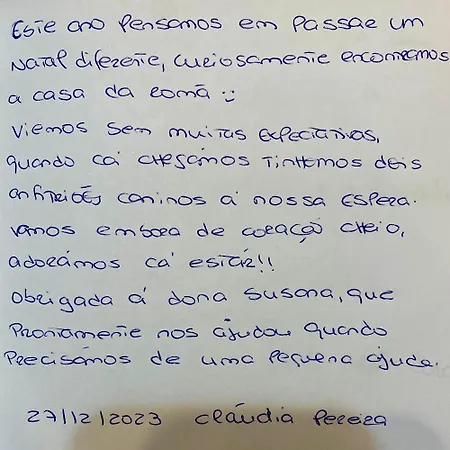 Este ano pensamos em passar um
Natal diferente, curiosamente encontramos
a casa da romã :)
Viemos sem muitas expectativas,
quando cá chegámos tinhamos dois
anfitriões caninos á nossa espera.
vamos embora de coração cheio,
adorámos cá estar!!
Obrigada á dona Susana, que
Prontamente nos ajudou quando
Precisámos de uma pequena ajuda.
27/12/2023 Cláudia Pereira